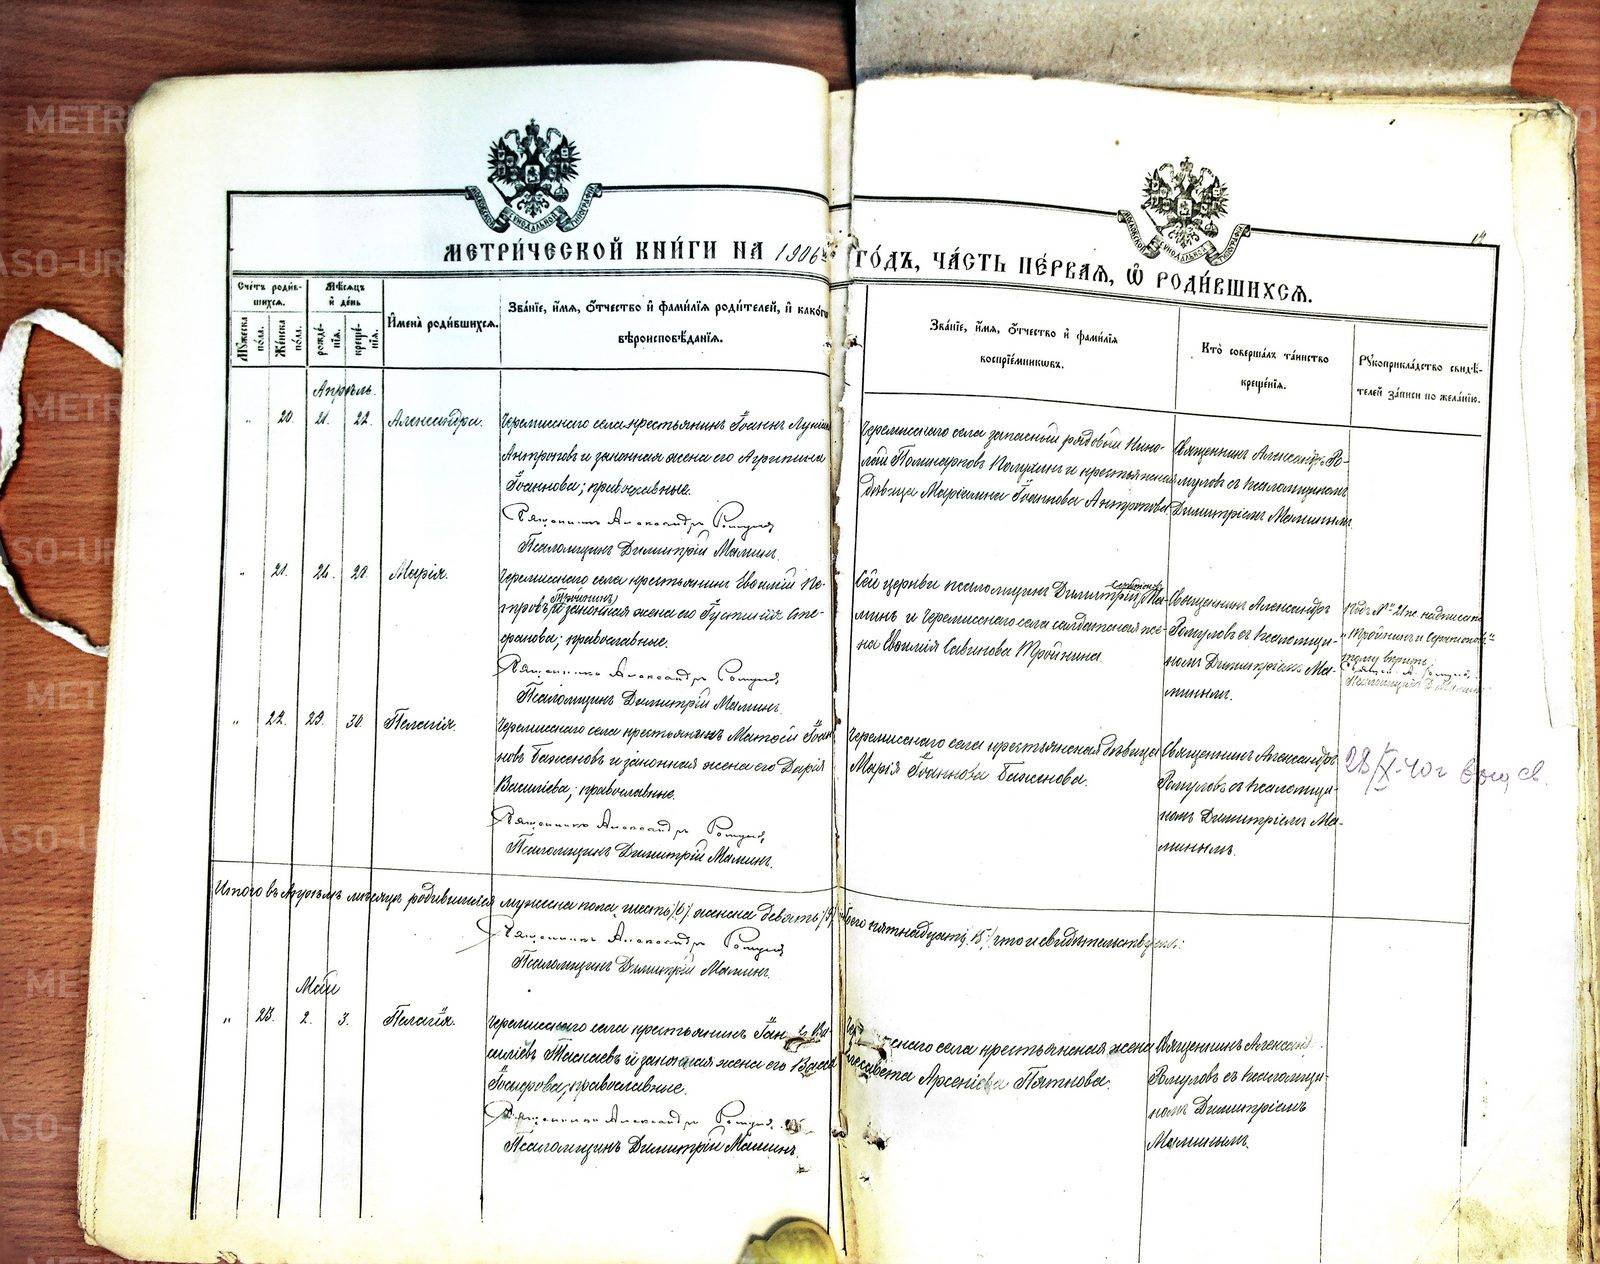 МЕТРИЧЕСКОЙ КНИГИ НА 1906й ГОДЪ, ЧАСТЬ ПЕРВАЯ, Ѡ РОДИВШИХСЯ.
Счетъ родив-
шихся.
Мужеска пола.
Женска пола.
Мѣсяцъ и день
рождѣ-
нія.
креще-
нія.
Имена родившихся.
Званіе, имя, отчество и фамилія родителей, и какого
вѣроисповѣданія.
Званіе, имя, отчество и фамилія
воспріемниковъ.
Кто совершалъ таинство
крещенія.
Рукоприкладство свидѣ-
телей записи по желанію.
Апрѣль.
" 20. 21. 22. Александра.
Черемисскаго села крестьянинъ Іоаннъ
Антроповъ и законная жена его Агрипина
Іоаннова; православные.
Священникъ Александръ Ромуловъ
Псаломщикъ Димитрій Маминъ.
Черемисскаго села запасный рядовый Нико-
лай Поликарповъ и крестьянская
дѣвица Іоаннова Антропова
Священникъ Александръ Ро-
муловъ съ псаломщикомъ
Димитріемъ Маминымъ
" 21. 24. 29. Марія.
Черемисскаго села крестьянинъ Евсивій Пе-
тровъ и законная жена его Іустинія Сте-
фанова; православные.
Священникъ Александръ Ромуловъ
Псаломщикъ Димитрій Маминъ.
Сей церкви псаломщикъ Димитрій Ма-
минъ и Черемисскаго села солдатская же-
на Савинова Тройнина
Священникъ Александръ
Ромуловъ съ псаломщи-
комъ Димитріемъ Ма-
минымъ.
Подъ № 21 ж. надписано
тому вѣрить.
" 22. 29. 30. Пелагія.
Черемисскаго села крестьянинъ Матѳей Іоан-
новъ Баженовъ и законная жена его Дарія
Василіева; православные.
Священникъ Александръ Ромуловъ
Псаломщикъ Димитрій Маминъ.
Черемисскаго села крестьянская дѣвица
Марія Іоаннова Баженова.
Священникъ Александръ
Ромуловъ съ псаломщи-
комъ Димитріемъ Ма-
минымъ.
28/X-40г св.
Итого въ Апрѣлѣ мѣсяцѣ родившихся мужска пола шесть (6) женска девять (9) всего пятнадцать 15, что и свидѣтельствуемъ:
Священникъ Александръ Ромуловъ
Псаломщикъ Димитрій Маминъ.
Май
" 23. 2. 3. Пелагія.
Черемисскаго села крестьянинъ Ва-
силіевъ и законная жена его Васса
православные.
Священникъ Александръ Ромуловъ
Псаломщикъ Димитрій Маминъ.
села крестьянская жена
Арсеніева Пяткова.
Священникъ Александ
Ромуловъ съ псаломщи-
комъ Димитріемъ
Маминымъ.